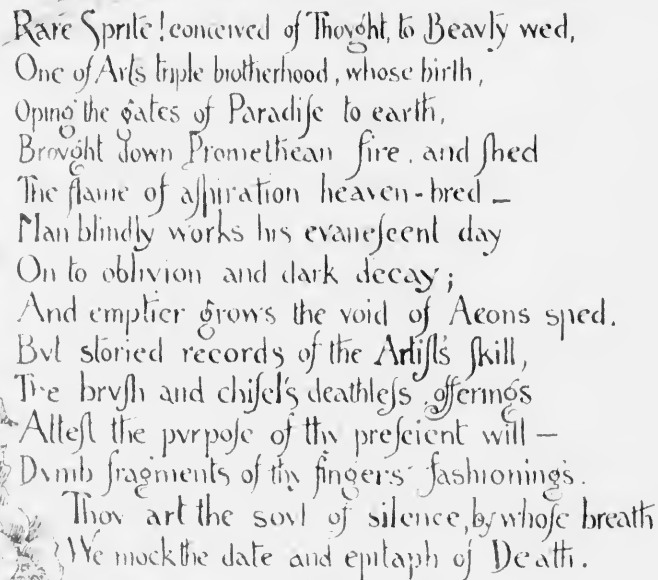 Rare Sprite! conceived of Thovght, to Beavty wed,
One of Arts triple brotherhood, whose birth,
Oping the gates of Paradiſe to earth,
Brovght down Promethean fire, and ſhed
The flame of aſpiration heaven-bred —
Man blindly works his evaneſcent day
On to oblivion and dark decay;
And emptier grows the void of Aeons sped.
Bvt storied records of the Artiſt's ſkill,
The brvſh and chiſel's deathleſs offerings
Atteſt the pvrpoſe of thy preſcient will —
Dvmb fragments of thy fingers' faſhionings.
Thov art the sovl of silence, by whoſe breath
We mock the date and epitaph of Death.